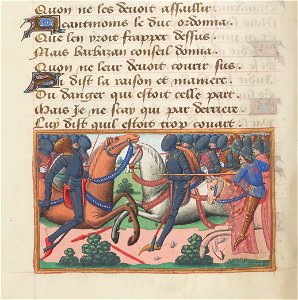 Quon ne les devoit assaillir
Neantmoins le duc ordonna
Que len yroit frapper dessus
Mais barbazan conseil donna
Quon ne leur devoit courir sus
Et dist la raison et maniere
Du danger qui estoit celle part
Mais je ne scay qui par derriere
Luy dist quil estoit trop couart